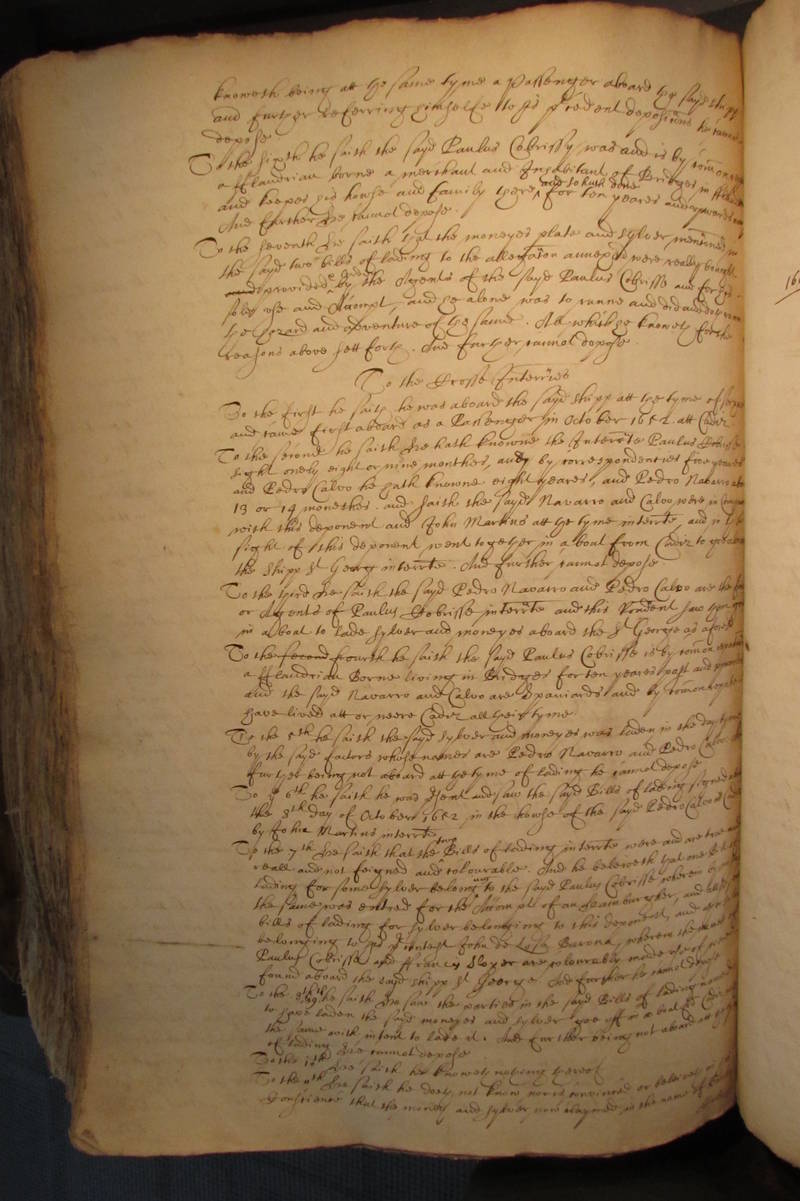 knoweth being att the same tyme a Passenger aboard the sayd shipp
and further referring himselfe to his precedent depositions he cannot
depose
To the sixth he saith the sayd Paulus Cobrissy was and is by common
a fflandrian borne a merchant and Inhabitant of Bridges in fflanders
and keepes his howse and family there and so hath done for ten yeares and upwards
And further hee cannot depose.
To the seventh hee saith that the moneyes plate and sylver mentioned in
the sayd two bills of lading to the allegation annexed were really bought
and provided by the Agents of the sayd Paulus Cobrisse and for his
soley use and Accompt, and he alone was to runne and did and doth runne
the hazard and adventure of the same. All which he knoweth for the
reasons above sett forth. And further cannot depose.
To the Crosse Interries
To the first he saith he was aboard the sayd shipp att the tyme of
and came first aboard as a Passenger in October 1652 att Cadiz
To the second he saith hee hath knowne the Interrte Paulus Cobrisse
sight onely eight or nine monthes, and by correspondencies five yeares
and Pedro Calvo he hath knowne eight yeares, and Pedro Navarro
13 or 14 monethes. and saith the sayd Navarro and Calvo were in
with this deponent and John Martins att the tyme interrte, and in
sight of this deponent went together in a boat from Cadiz to goe
the shipp St George interrte. And further cannot depose
To the third hee saith the sayd Pedro Navarro and Pedro Calvo are the
or Agents of Paulus Cobrisse interrte and this Rendent saw them
in a boat to lade sylver and moneyes aboard the St George as afored
To the second fourth he saith the sayd Paulus Cobrisse is by common
a fflandrian Borne living in Bridges for ten yeares past and
and the sayd Navarro and Calvo are Spaniards and by common
have lived att or neere Cadiz all their tyme.
To the 5th he saith the sayd sylver and moneyes was laden in the day tyme
by the sayd factors whose names are Pedro Navarro and Pedro Calvo
further being not aboard att the tyme of lading he cannot depose
To ye 6th he saith he was present and saw the sayd Bills of lading signed
the 8th day of October 1652 in the howse of the sayd Pedro Calvo
by John Martins interrte
To the 7th hee saith that the two Bills of lading interrte were and are true and
reall and not feigned and colourable. And he beleiveth that one
lading for some sylver belong to the sayd Paulus Cobrisse wherein
the same was entred for the Accompt of an Hamburgher, and
bills of lading for sylver belonging to this deponent, and
belonging to John de Barona, wherein the names of
Paulus Cobrisse and ffrancy Sloyer are colourably made use of
found aboard the sayd shipp St George And further he cannot depose
To the 8th he saith hee saw the parties in the sayd Bills of lading
to have laden the sayd moneyes and sylver goe off in a boat
the same with intent to lade it. And further being not aboard att
of lading hee cannot depose
To the hee saith he knoweth nothing thereof
To the hee saith he doth not know nor is convinced or beleiveth in
Conscience that the moneys and sylver now claymed in the name of